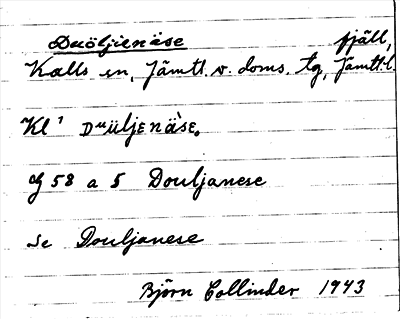 Duöljienäse fjäll,
Kalls sn, Jämtl. v. doms. tg, Jämtl. l.
Kl¹ Dᵘüljᴇnäsᴇ.
58 a 5 Douljanese
se Douljanese
Björn Collinder 1943